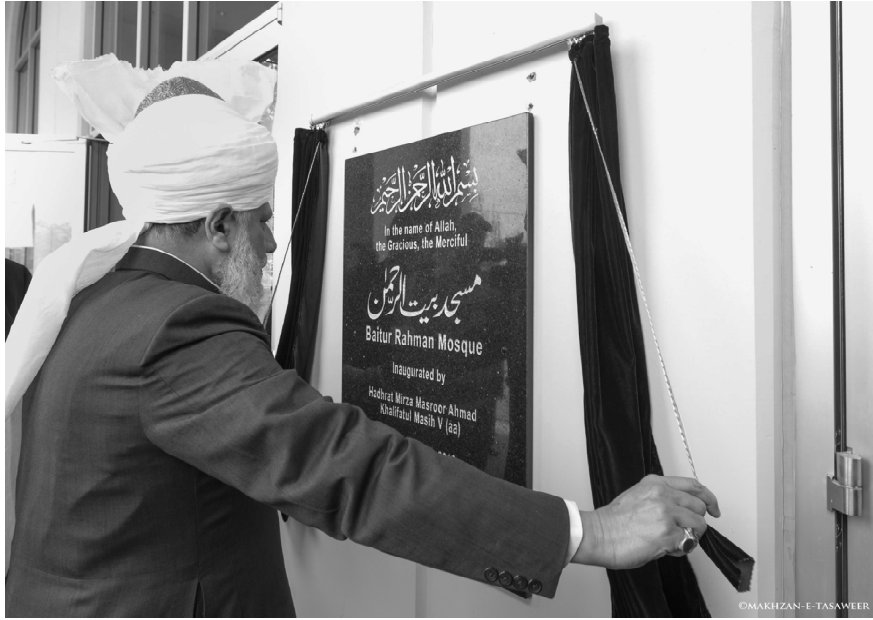 بسم الله الرحمن الرحيم
In the name of Allah,
the Gracious, the Merciful
مسجد بيت الرحمن
Baitur Rahman Mosque
Inaugurated by
Hadhrat Mirza Masroor Ahmad
Khalifatul Masih V (aa)
©MAKHZAN-E-TASAWEER